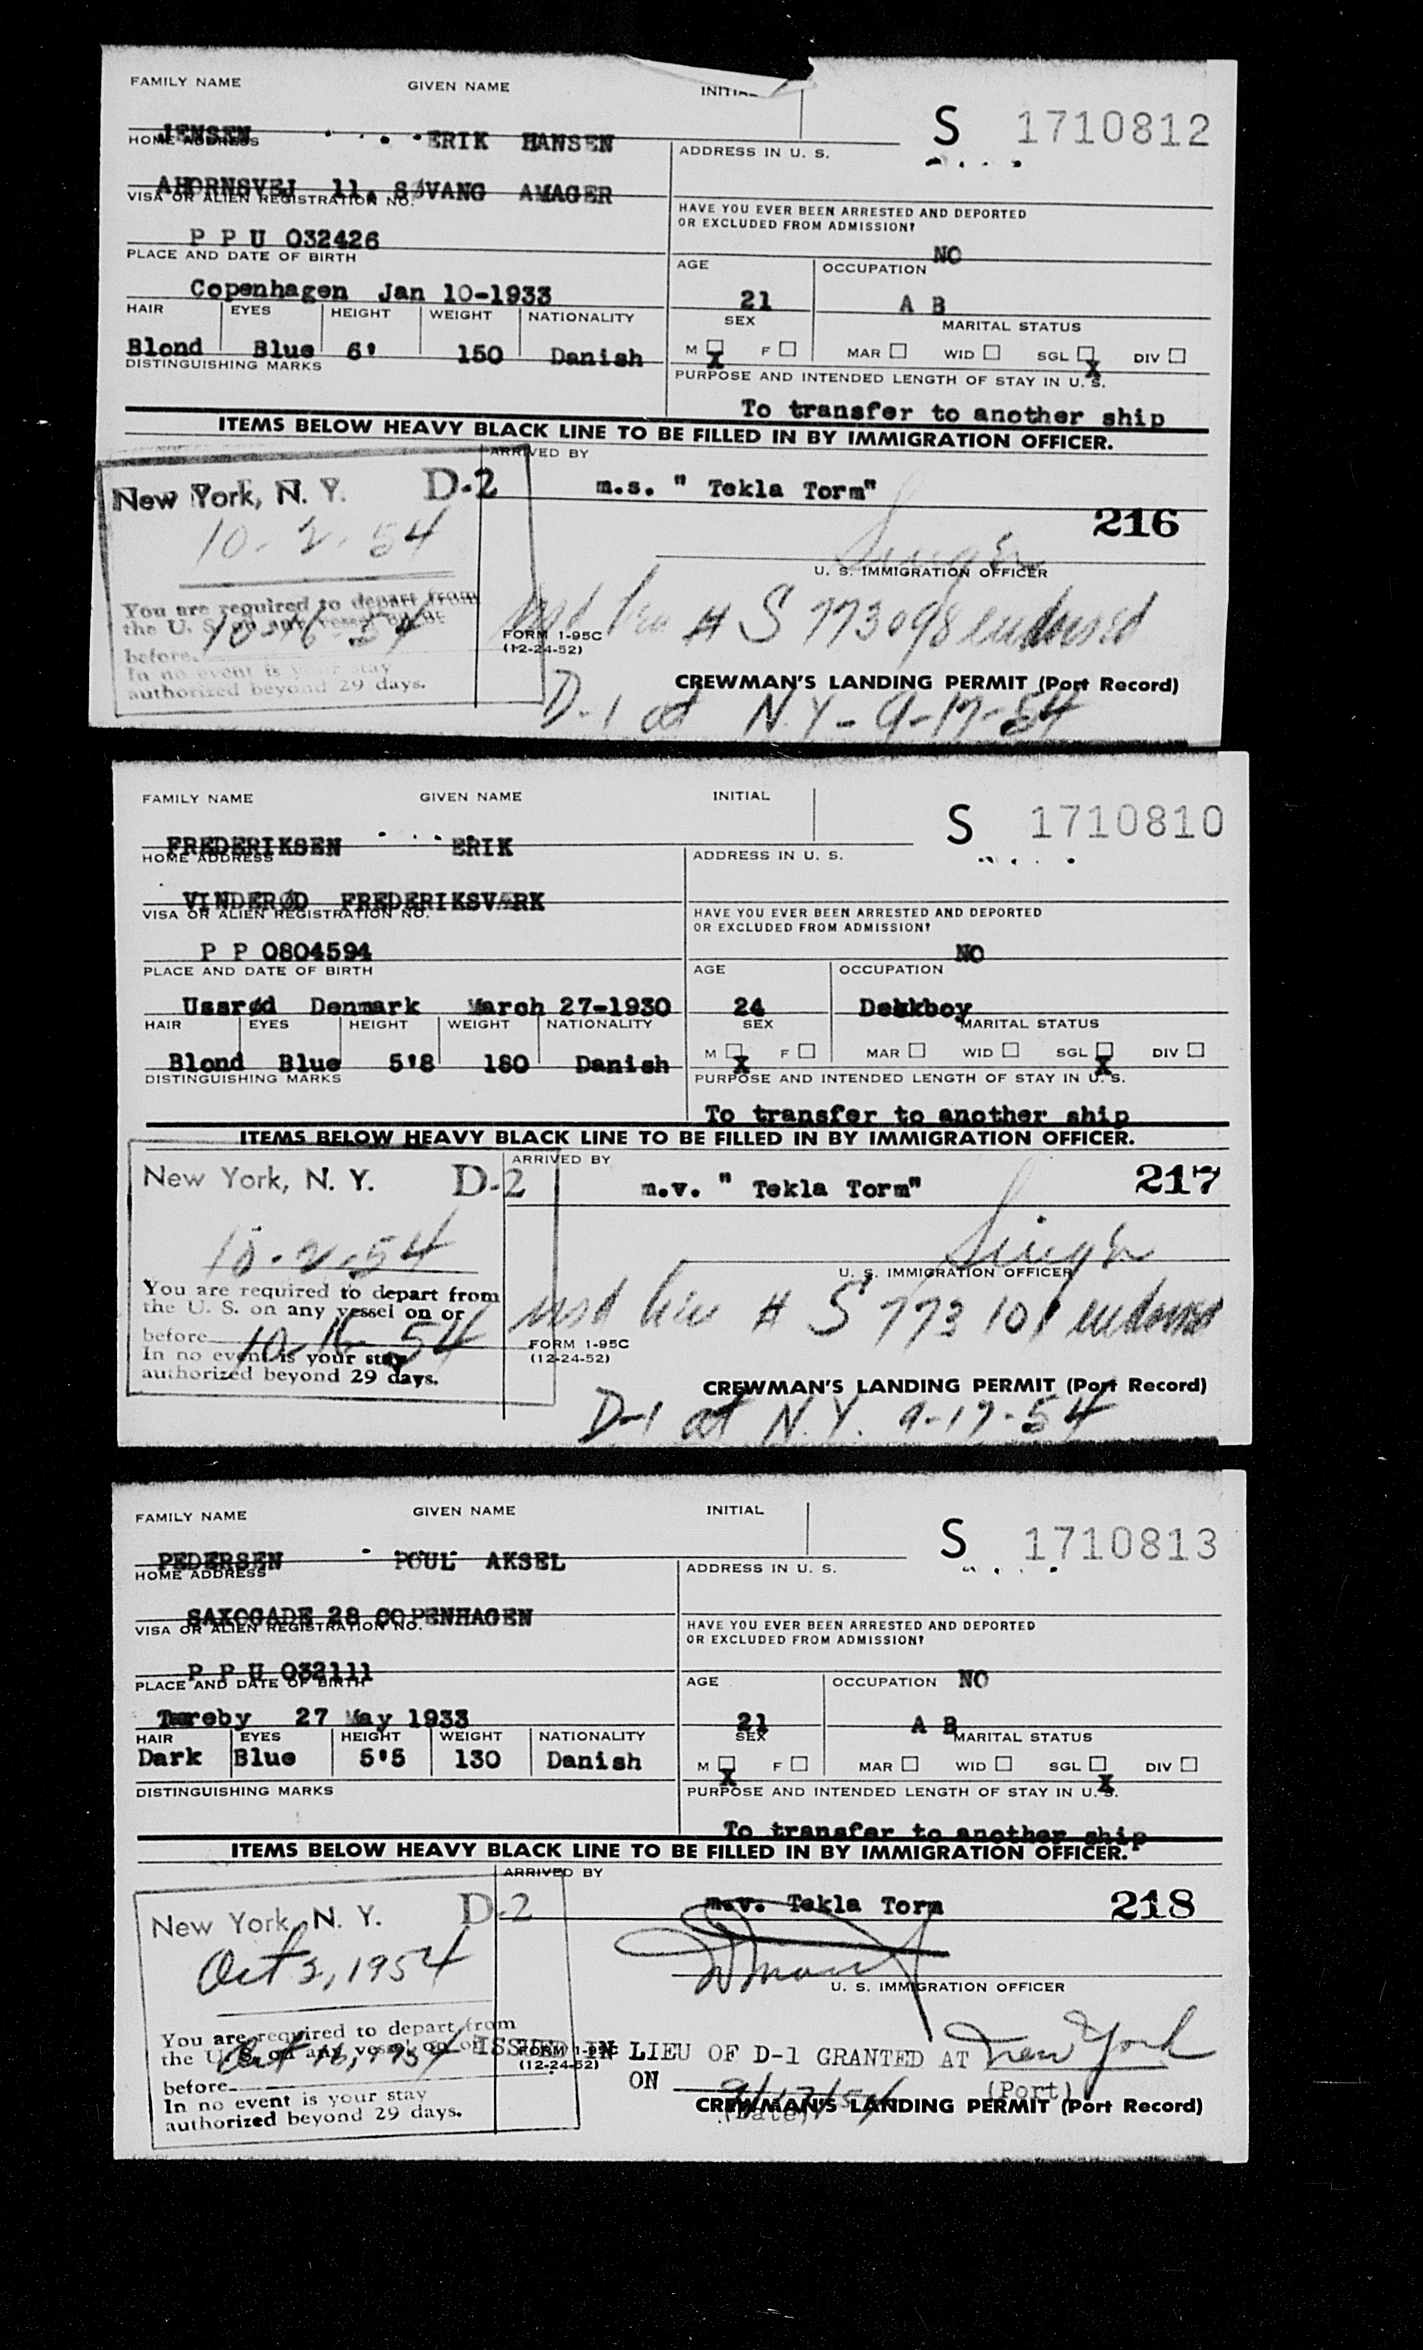 FAMILY NAME GIVEN NAME
S 1710812
JENSEN ERIK HANSEN
HOME ADDRESS ADDRESS IN U. S.
AHORNSVEJ 11. SØVANG AMAGER
VISA OR ALIEN REGISTRATION NO. HAVE YOU EVER BEEN ARRESTED AND DEPORTED
OR EXCLUDED FROM ADMISSION?
P P U 032426 NO
PLACE AND DATE OF BIRTH AGE OCCUPATION
Copenhagen Jan 10-1933 21 A B
HAIR EYES HEIGHT WEIGHT NATIONALITY SEX MARITAL STATUS
Blond Blue 6' 150 Danish M X F MAR WID SGL X DIV
DISTINGUISHING MARKS PURPOSE AND INTENDED LENGTH OF STAY IN U. S.
To transfer to another ship
ITEMS BELOW HEAVY BLACK LINE TO BE FILLED IN BY IMMIGRATION OFFICER.
ARRIVED BY
New York, N. Y. D-2 m.s. " Tekla Torm"
10-2-54 216
U. S. IMMIGRATION OFFICER
You are required to depart from
the U. S. on any vessel on or
before 10-16-54
In no event is your stay
authorized beyond 29 days.
# S 773098 endorsed
FORM 1-95C
(12-24-52)
CREWMAN'S LANDING PERMIT (Port Record)
D-1 at N.Y- 9-17-54
FAMILY NAME GIVEN NAME INITIAL
S 1710810
FREDERIKSEN ERIK
HOME ADDRESS ADDRESS IN U. S.
VINDERØD FREDERIKSVÆRK
VISA OR ALIEN REGISTRATION NO. HAVE YOU EVER BEEN ARRESTED AND DEPORTED
OR EXCLUDED FROM ADMISSION?
P P 0804594 NO
PLACE AND DATE OF BIRTH AGE OCCUPATION
Ussrød Denmark March 27-1930 24 Dekkboy
HAIR EYES HEIGHT WEIGHT NATIONALITY SEX MARITAL STATUS
Blond Blue 5'8 180 Danish M X F MAR WID SGL X DIV
DISTINGUISHING MARKS PURPOSE AND INTENDED LENGTH OF STAY IN U. S.
To transfer to another ship
ITEMS BELOW HEAVY BLACK LINE TO BE FILLED IN BY IMMIGRATION OFFICER.
ARRIVED BY
New York, N. Y. D-2 m.v. " Tekla Torm" 217
10-2-54
U. S. IMMIGRATION OFFICER
You are required to depart from
the U. S. on any vessel on or
before 10-16-54
In no event is your stay
authorized beyond 29 days.
# S 773101 endorsed
FORM 1-95C
(12-24-52)
CREWMAN'S LANDING PERMIT (Port Record)
D-1 at N.Y. 9-17-54
FAMILY NAME GIVEN NAME INITIAL
S 1710813
PEDERSEN POUL AKSEL
HOME ADDRESS ADDRESS IN U. S.
SAXOGADE 28 COPENHAGEN
VISA OR ALIEN REGISTRATION NO. HAVE YOU EVER BEEN ARRESTED AND DEPORTED
OR EXCLUDED FROM ADMISSION?
P P U 032111 NO
PLACE AND DATE OF BIRTH AGE OCCUPATION
Tøreby 27 May 1933 21 A B
HAIR EYES HEIGHT WEIGHT NATIONALITY SEX MARITAL STATUS
Dark Blue 5'5 130 Danish M X F MAR WID SGL X DIV
DISTINGUISHING MARKS PURPOSE AND INTENDED LENGTH OF STAY IN U. S.
To transfer to another ship
ITEMS BELOW HEAVY BLACK LINE TO BE FILLED IN BY IMMIGRATION OFFICER.
ARRIVED BY
New York, N. Y. D-2 m.v. Tekla Torm 218
Oct 2, 1954
U. S. IMMIGRATION OFFICER
You are required to depart from
the U. S. on any vessel on or
before Oct 16, 1954
In no event is your stay
authorized beyond 29 days.
ISSUED IN LIEU OF D-1 GRANTED AT New York
(Port)
ON 9/17/54
(Date)
FORM 1-95C
(12-24-52)
CREWMAN'S LANDING PERMIT (Port Record)